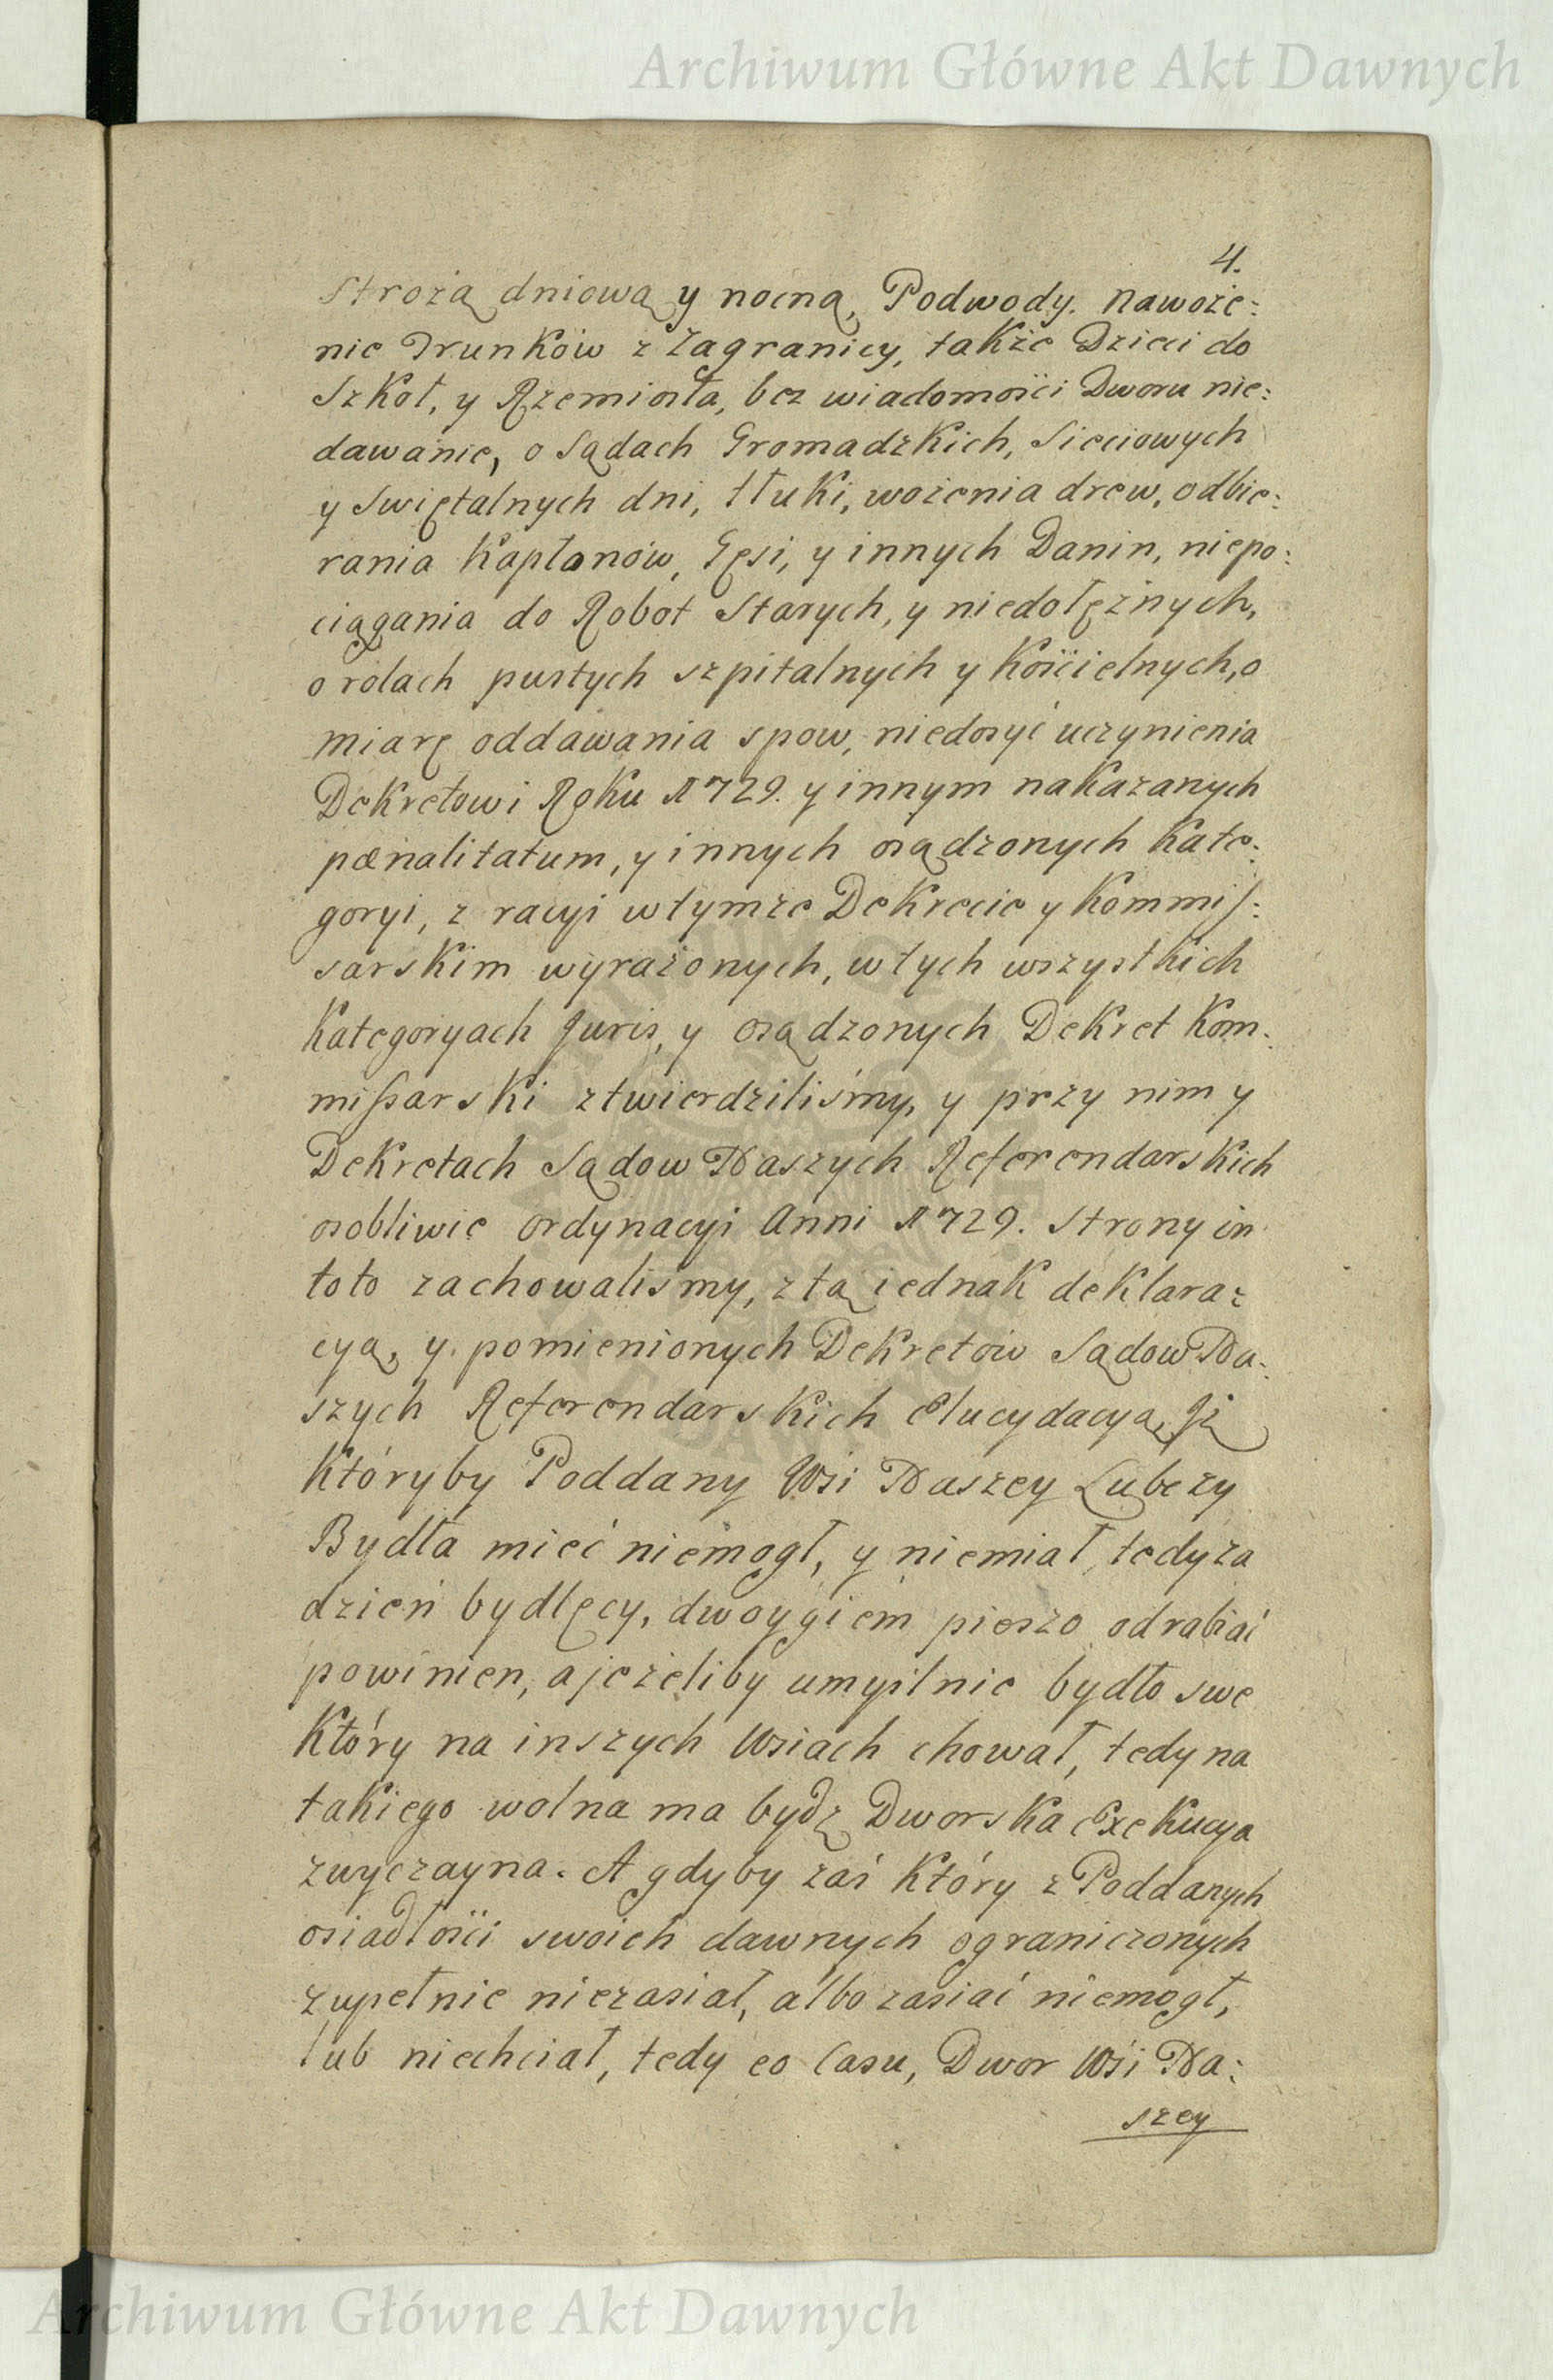 Archiwum Główne Akt Dawnych
4.
Strożą dniową y nocną, Podwody. Nawoże:
nie Trunków z Zagranicy, także Dzieci do
Szkoł, y Rzemiosła, bez wiadomości Dworu nie:
dawanie, o Sądach Gromadzkich, Sieciowych
y Swiętalnych dni, tłuki, wożenia drew, odbie:
rania Kapłonów, Gęsi, y innych Danin, niepo:
ciągania do Robot Starych, y niedołężnych,
o rolach pustych szpitalnych y Kościelnych, o
miarę oddawania spow, niedosyć uczynienia
Dekretowi Roku 1729. y innym nakazanych
pænalitatum, y innych osądzonych Kate:
goryi, z racyi wtymże Dekrecie y Kommis:
sarskim wyrażonych, wtych wszystkich
Kategoryach Juris, y osądzonych Dekret Kom:
missarski ztwierdziliśmy, y przy nim y
Dekretach Sądow Naszych Referendarskich
osobliwie ordynacyi Anni 1729. Strony in
toto zachowaliśmy, ztą iednak deklara:
cyą, y. pomienionych Dekretów Sądow Na:
szych Referendarskich Elucydacyą, Jż
Któryby Poddany Wsi Naszey Lubczy
Bydła mieć niemogł, y niemiał, tedy za
dzień bydlęcy, dwoygiem pieszo odrabiać
powinien, a jeżeliby umyślnie bydło swe
Który na inszych Wsiach chował, tedy na
takiego wolna ma bydź Dworska Exekucya
zwyczayna. A gdyby zaś Który z Poddanych
osiadłości swoich dawnych ograniczonych
zupełnie niezasiał, albo zasiać niemogł,
lub niechciał, tedy eo Casu, Dwor Wsi Na:
szey
Archiwum Główne Akt Dawnych